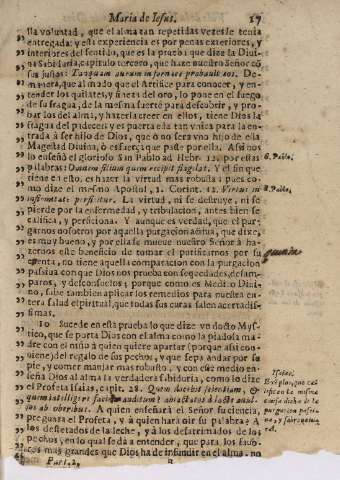 Maria de Iesus. 17
lla voluntad, que el alma tan repetidas vezes le tenia
entregada: y esta experiencia es por penas exteriores, y
interiores del sentido, que es la prueba que dize la Divi-
na Sabiduria, capitulo tercero, que haze nuestro Señor cõ
sus justos: Tanquam aurum in fornace probauit eos. De
manera, que al modo que el Artifice para conocer, y en-
tender los quilates, y finezas del oro, lo pone en el fuego
de su fragua, de la mesma suerte para descubrir, y pro-
bar los del alma, y hazerla creer en ellos, tiene Dios la
fragua del padecer: y es puerta esta tan vnica para la en-
trada â ser hijo de Dios, que ò no serà vno hijo de ella
Magestad Divina, ò es fuerça que passe por ella. Assi nos
lo enseñò el glorioso San Pablo ad Hebr. 12. por estas
palabras: Omnem filium quem recipit flagelat. Y el fin que
tiene en esto, es hazer la virtud mas robusta; pues co-
mo dize el mesmo Apostol, 2. Corint. 12. Virtus in
infirmitate perficitur. La virtud, ni se destruye, ni se
pierde por la enfermedad, y tribulacion, antes bien se
califica, y perficiona. Y aunque es verdad, que el pur-
garnos nosotros por aquella purgacion activa, que dixe,
es muy bueno, y por ella se mueve nuestro Señor à ha-
zernos este beneficio de tomar el purificarnos por su
cuenta, no tiene aquella comparacion con la purgacion
passiua con que Dios nos prueba con sequedades, desam-
paros, y desconsuelos; porque como es Medico Divi-
no, sabe tambien aplicar los remedios para nuestra en-
tera salud espiritual, que todas sus curas salen acertadis-
simas.
10 Sucede en esta prueba lo que dize vn docto Mys-
tico, que se porta Dios con el alma como la piadosa ma-
dre con el niño à quien quiere apartar (porque assi con-
viene) del regalo de sus pechos, y que sepa andar por su
pie, y comer manjar mas robusto, y con este medio en-
seña Dios al alma la verdadera sabiduria, como lo dize
el Profeta Isaias, capit. 28. Quem docebit scientiam, &
quem intelligere faciet auditum? ablactatos à lacte, auul-
sos ab uberibus. A quien enseñarà el Señor su ciencia,
pregunta el Profeta, y à quien harà oir su palabra? A
los desterados de la leche, y à los desarrimados de los
pechos, en lo qual se da a entender, que para los fauo-
res mas grandes que Dios ha de infundir en el alma, no
Part. 2. B
S. Pablo.
S. Pablo.
Isaias.